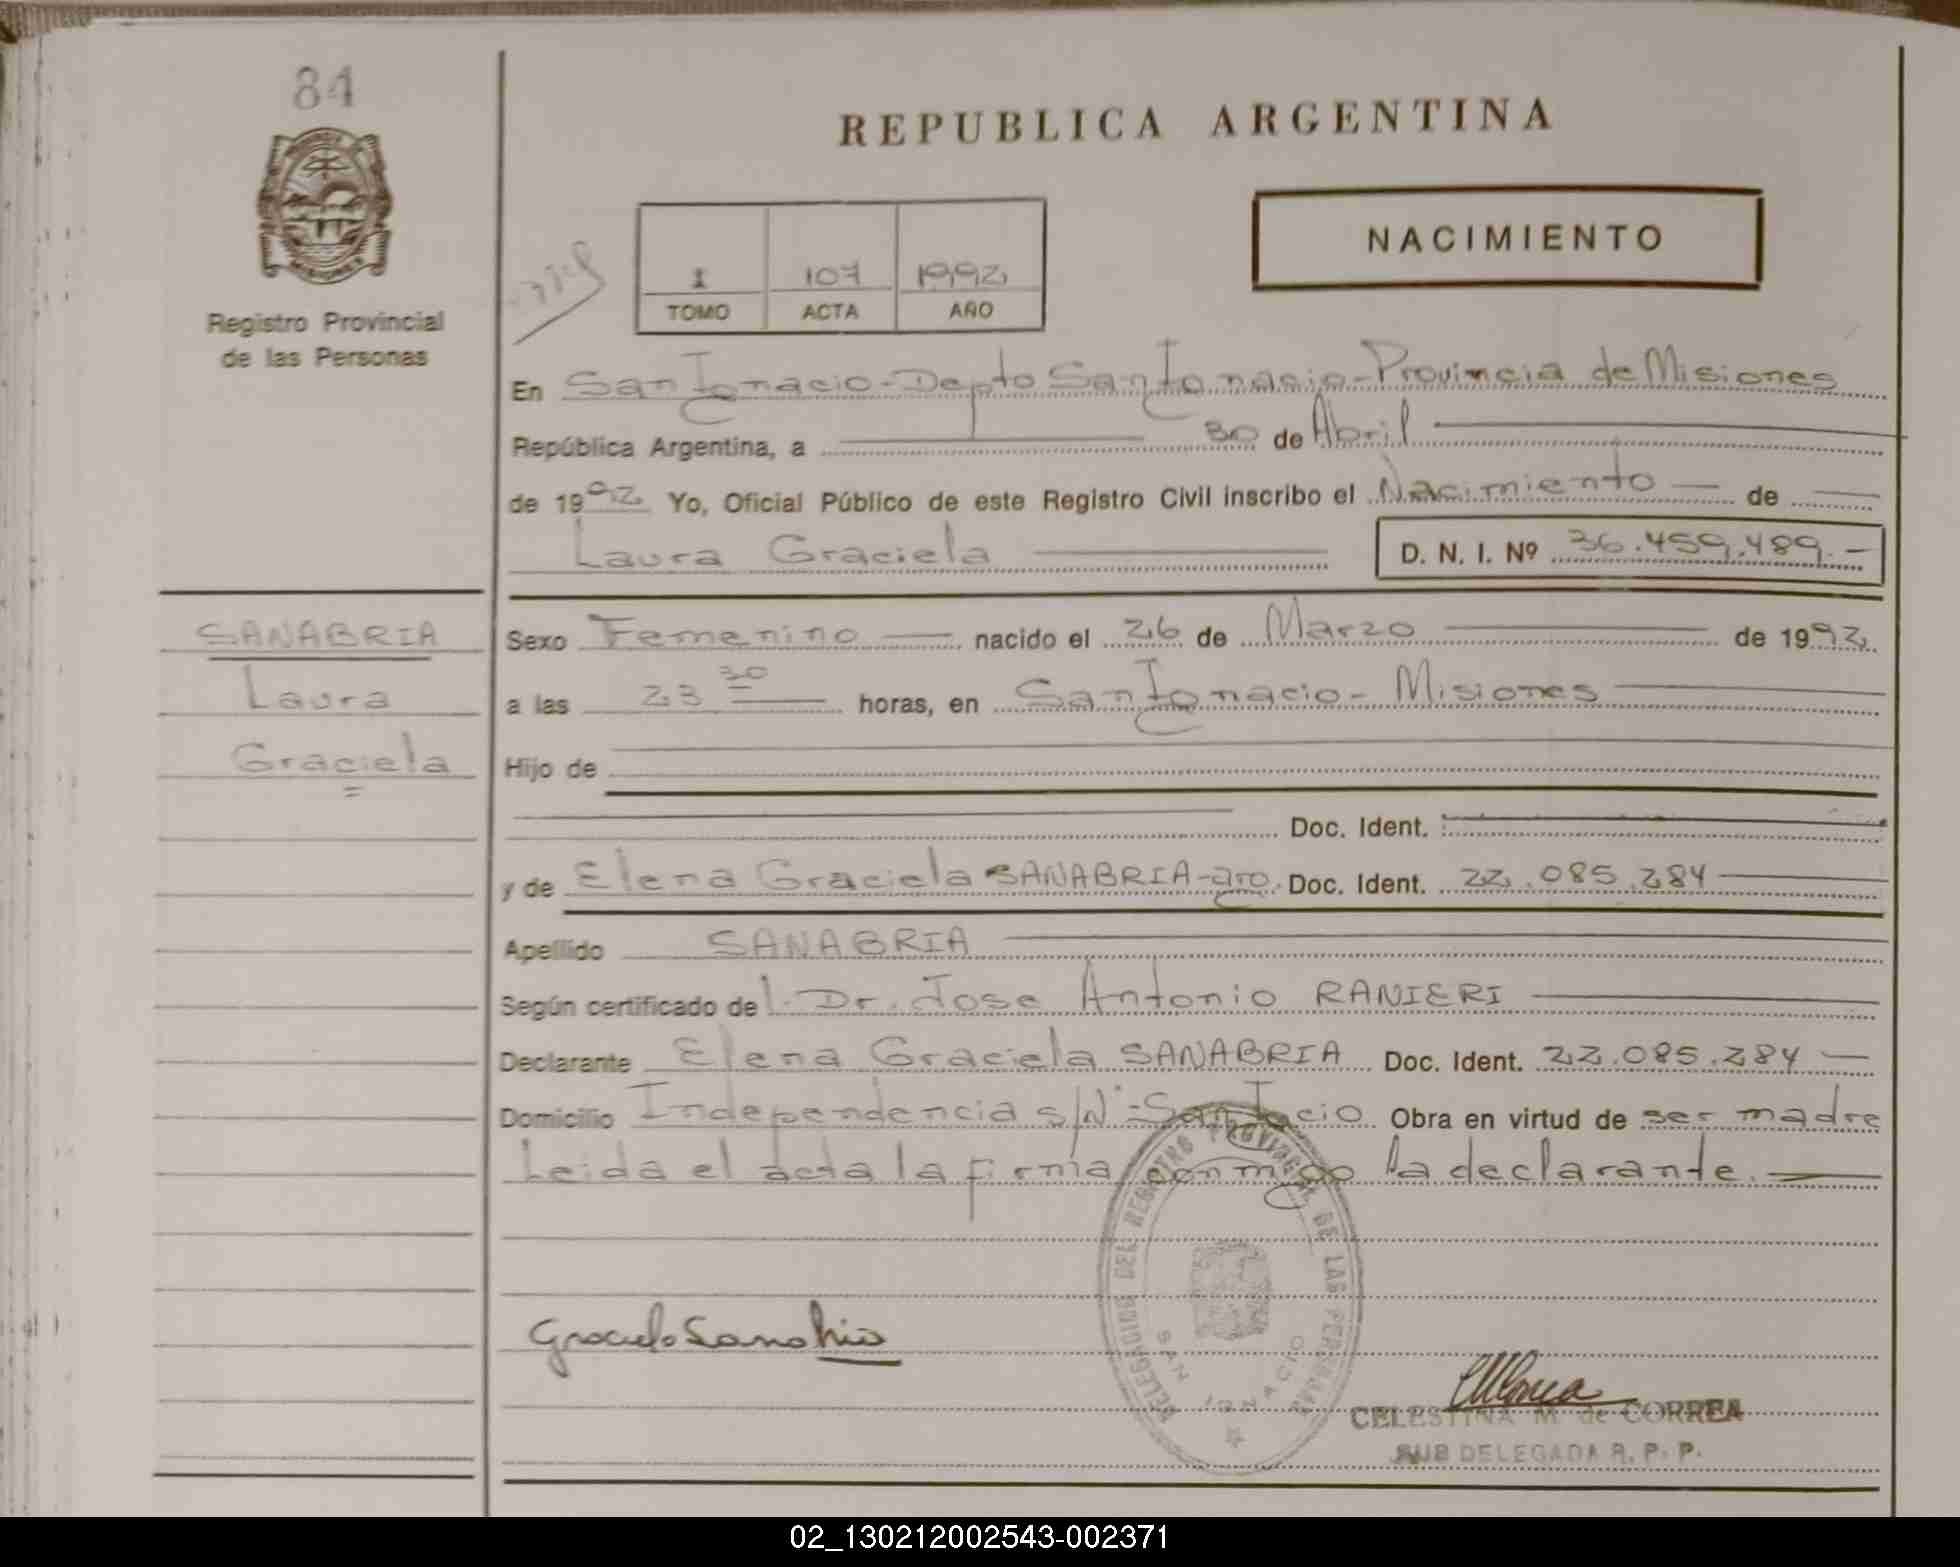 84
REPUBLICA ARGENTINA
NACIMIENTO
I 107 1992
TOMO ACTA AÑO
Registro Provincial
de las Personas
En San Ignacio - Depto San Ignacio - Provincia de Misiones
República Argentina, a 30 de Abril
de 1992 Yo, Oficial Público de este Registro Civil inscribo el Nacimiento de
Laura Graciela D. N. I. Nº 36.459.489.-
SANABRIA
Laura
Graciela
Sexo Femenino nacido el 26 de Marzo de 1992
a las 23 30 horas, en San Ignacio - Misiones
Hijo de
Doc. Ident.
y de Elena Graciela SANABRIA - arg. Doc. Ident. 22.085.284
Apellido SANABRIA
Según certificado de l. Dr. Jose Antonio RANIERI
Declarante Elena Graciela SANABRIA Doc. Ident. 22.085.284
Domicilio Independencia s/Nº - San Ignacio Obra en virtud de ser madre
Leida el acta la firma conmigo la declarante.
DELEGACION DEL REGISTRO PROVINCIAL DE LAS PERSONAS
SAN IGNACIO
Graciela Sanabria
CELESTINA M. de CORREA
SUB DELEGADA R. P. P.
02_130212002543-002371